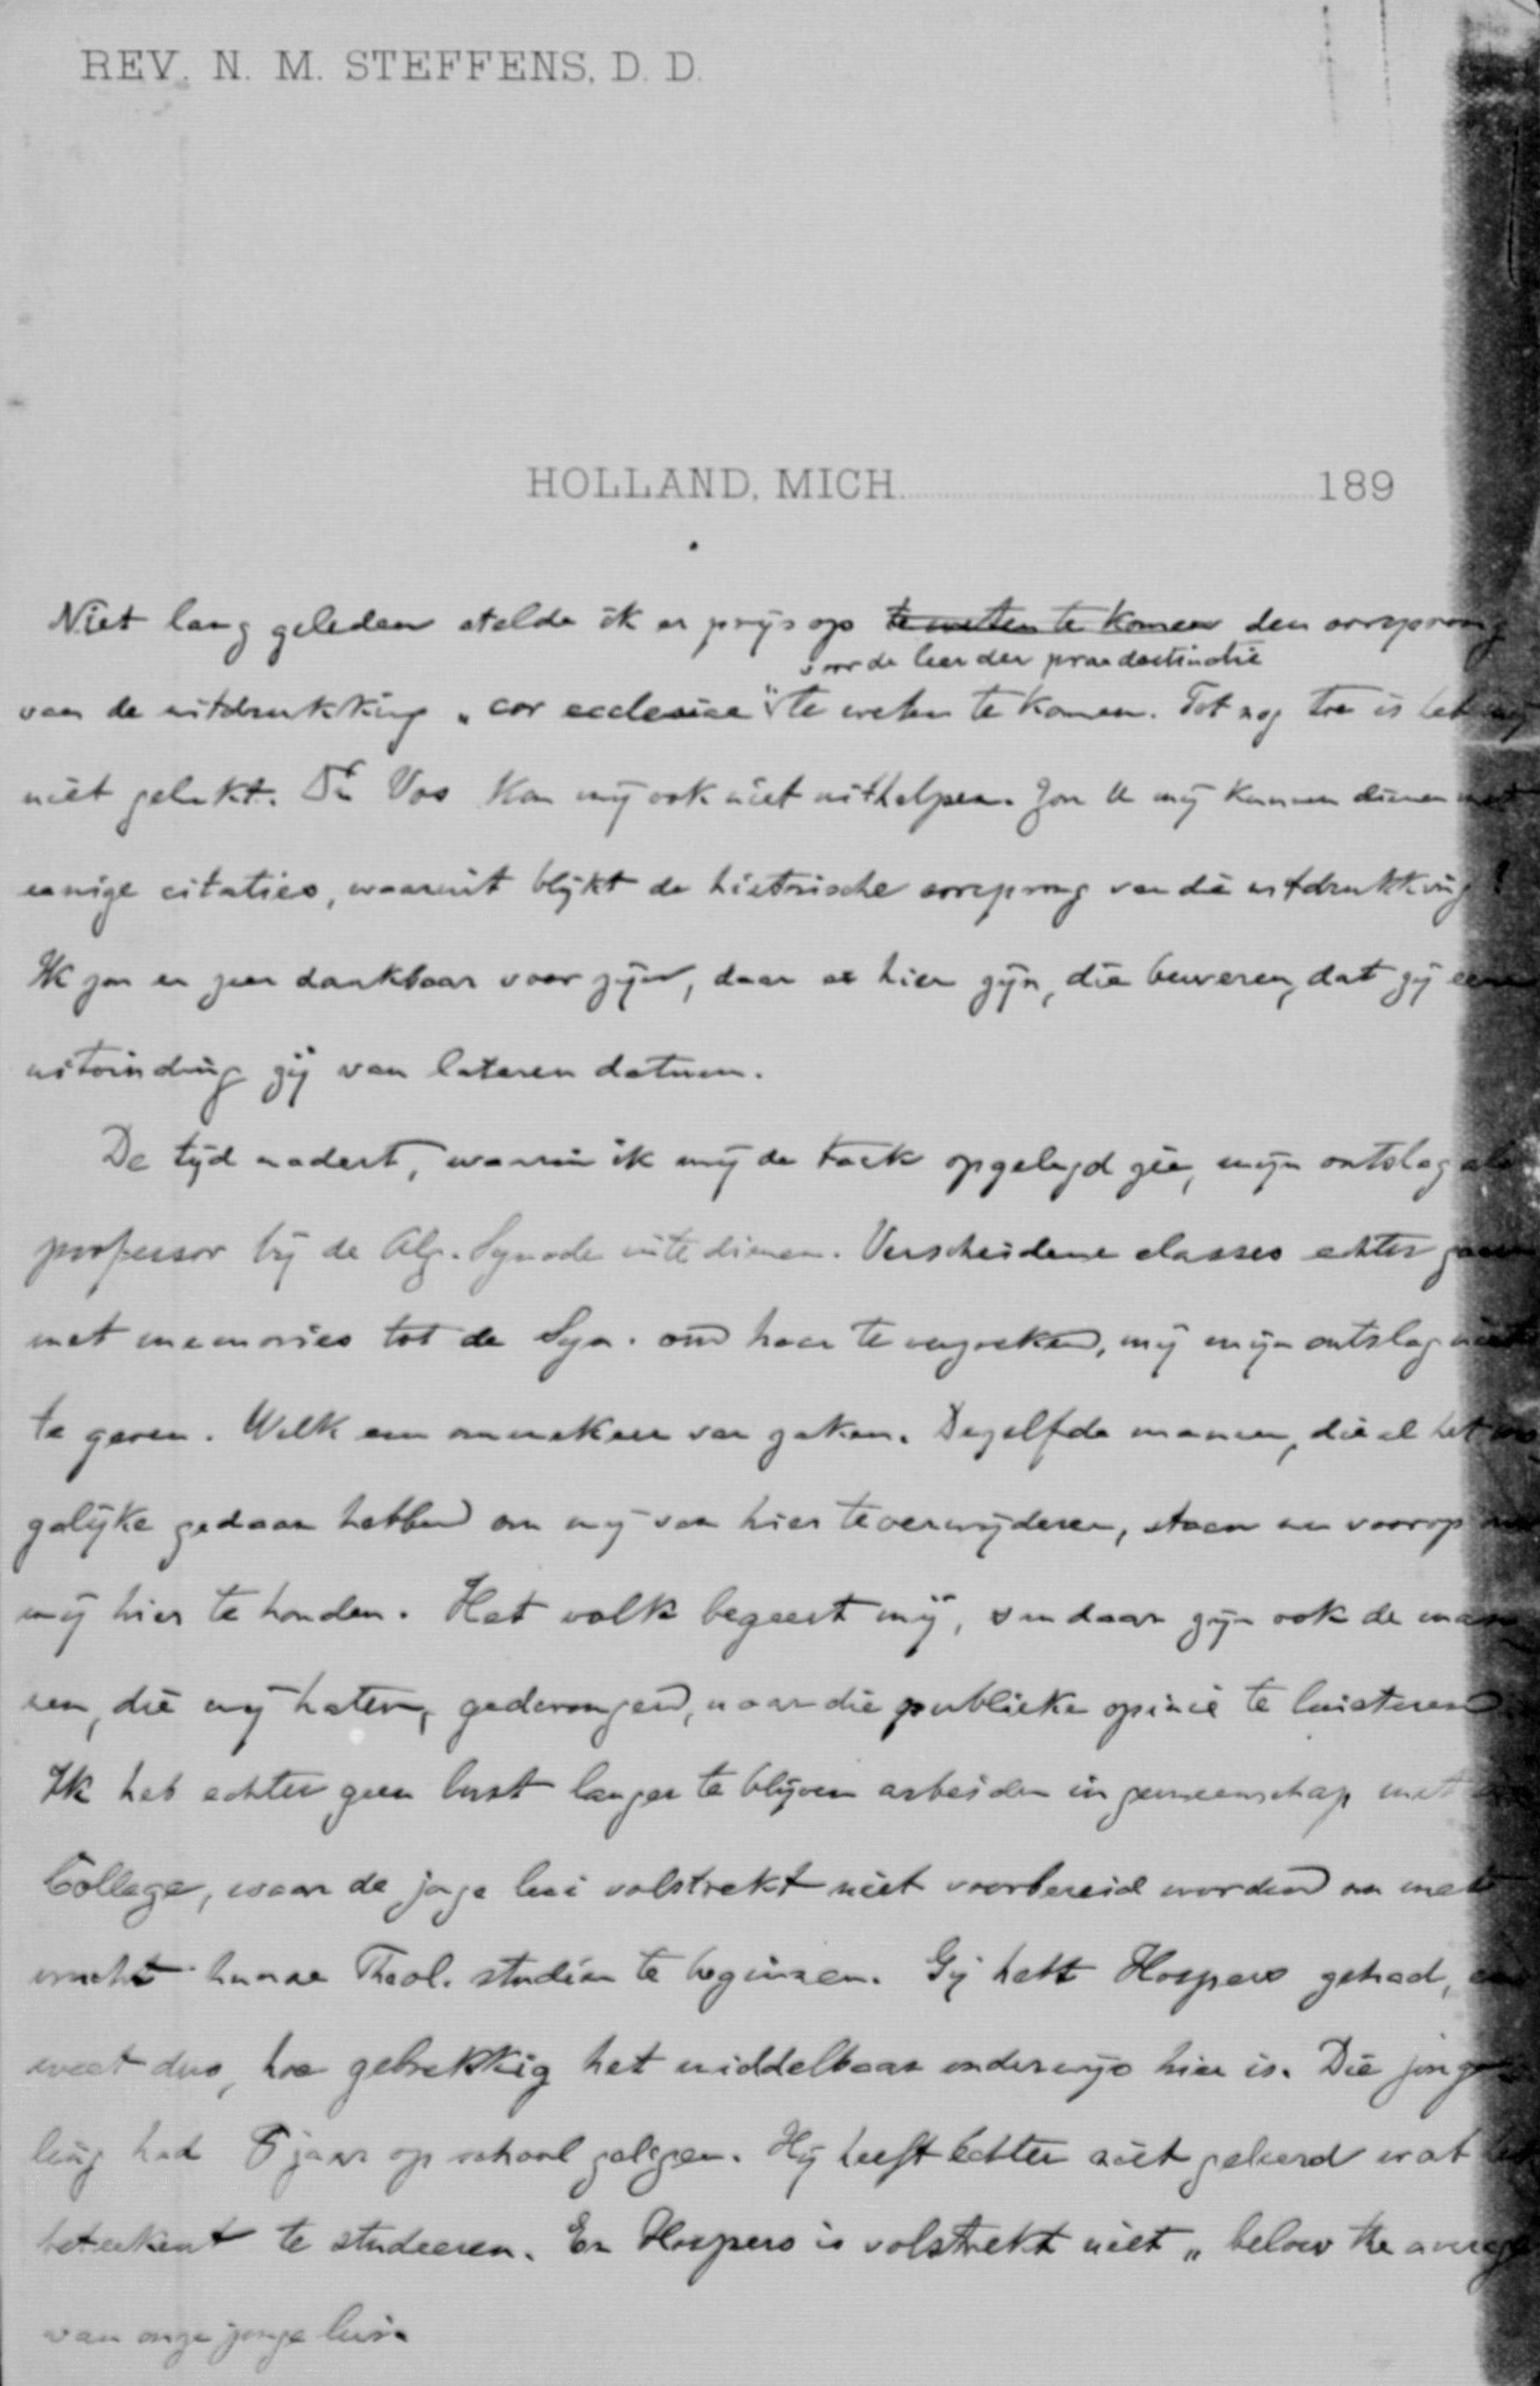 REV. N. M. STEFFENS, D. D.
HOLLAND, MICH. 189
Niet lang geleden stelde ik er prijs op te weten te komen den oorsprong
voor de leer der praedestinatie
van de uitdrukking „cor ecclesiae" te weten te komen. Tot nog toe is het mij
niet gelukt. Dr Vos kan mij ook niet uithelpen. Zou U mij kunnen dienen met
eenige citaties, waaruit blijkt de historische oorsprong van die uitdrukking?
Ik zou er zeer dankbaar voor zijn, daar er hier zijn, die beweren, dat zij eene
uitvinding zij van lateren datum.
De tijd nadert, waarin ik mij de taak opgelegd zie, mijn ontslag als
professor bij de Alg. Synode in te dienen. Verscheidene classes echter gaan
met memories tot de Syn. om haar te verzoeken, mij mijn ontslag niet
te geven. Welk een ommekeer van zaken. Dezelfde mannen, die al het mo
gelijke gedaan hebben om mij van hier te verwijderen, staan nu voorop om
mij hier te houden. Het volk begeert mij, vandaar zijn ook de man
nen, die mij haten, gedwongen, naar die publieke opinie te luisteren.
Ik heb echter geen lust langer te blijven arbeiden in gemeenschap met
College, waar de jonge lui volstrekt niet voorbereid worden om met
vrucht hunne Theol. studiën te beginnen. Gij hebt Hospers gehad, en
weet dus, hoe gebrekkig het middelbaar onderwijs hier is. Die jonge
ling had 8 jaar op school gelegen. Hij heeft echter niet geleerd wat het
beteekent te studeeren. En Hospers is volstrekt niet „below the average
van onze jonge lui.